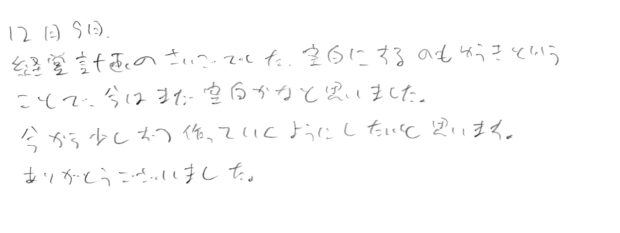 12日9日.
経営計画のさいごでした. 空白にするのもゆうきという
ことで、今はまだ空白かなと思いました。
今から少しずつ作っていくようにしたいと思います。
ありがとうございました。